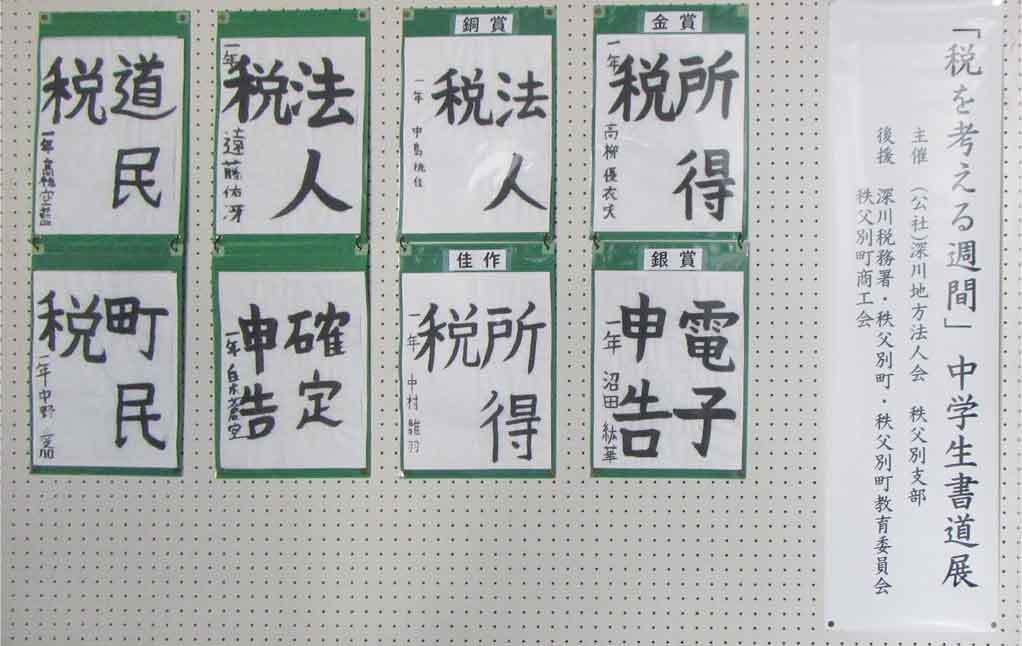 「税を考える週間」中学生書道展
主催 (公社)深川地方法人会 秩父別支部
後援 深川税務署・秩父別町・秩父別町教育委員会
秩父別町商工会
金賞
所得
税
一年 高柳 優衣
銀賞
電子
申告
一年 沼田 紘華
銅賞
法人
税
一年 中島
佳作
所得
税
一年 中村 雛羽
法人
税
一年 遠藤佑冴
確定
申告
一年
道民
税
一年
町民
税
一年 中野